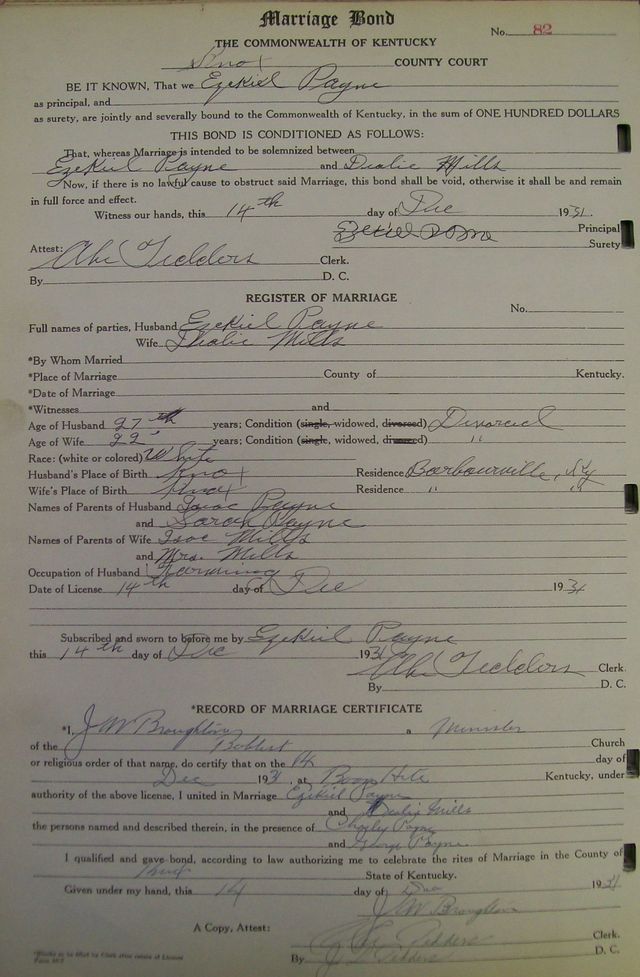 Marriage Bond
No. 82
THE COMMONWEALTH OF KENTUCKY
Knox COUNTY COURT
BE IT KNOWN, That we Ezekiel Payne
as principal, and
as surety, are jointly and severally bound to the Commonwealth of Kentucky, in the sum of ONE HUNDRED DOLLARS
THIS BOND IS CONDITIONED AS FOLLOWS:
That, whereas Marriage is intended to be solemnized between
Ezekiel Payne and Mills
Now, if there is no lawful cause to obstruct said Marriage, this bond shall be void, otherwise it shall be and remain
in full force and effect.
Witness our hands, this 14th day of Dec 1931.
Principal
Surety
Attest:
Abe Tedders Clerk.
By D. C.
REGISTER OF MARRIAGE
No.
Full names of parties, Husband Ezekiel Payne
Wife Mills
*By Whom Married
*Place of Marriage County of Kentucky.
*Date of Marriage
*Witnesses and
Age of Husband 27th years; Condition (single, widowed, divorced) Divorced
Age of Wife 22 years; Condition (single, widowed, divorced) "
Race: (white or colored) White
Husband's Place of Birth Knox Residence Barbourville, Ky
Wife's Place of Birth Knox Residence " "
Names of Parents of Husband Isaac Payne
and Sarah Payne
Names of Parents of Wife Isac Mills
and Mrs. Mills
Occupation of Husband Farming
Date of License 14th day of Dec 1931
Subscribed and sworn to before me by Ezekiel Payne
this 14th day of Dec 1931
Abe Tedders Clerk.
By D. C.
*RECORD OF MARRIAGE CERTIFICATE
*I, J W Broughton a Minister
of the Babtist Church
or religious order of that name, do certify that on the 14 day of
Dec 1931, at Kentucky, under
authority of the above license, I united in Marriage Ezekiel Payne
and Mills
the persons named and described therein, in the presence of Charley Payne
and George Payne
I qualified and gave bond, according to law authorizing me to celebrate the rites of Marriage in the County of
Knox State of Kentucky.
Given under my hand, this 14 day of Dec 1931
J W Broughton
A Copy, Attest: Tedders Clerk.
By Tedders D. C.
*Blanks to be filled by Clerk after return of License